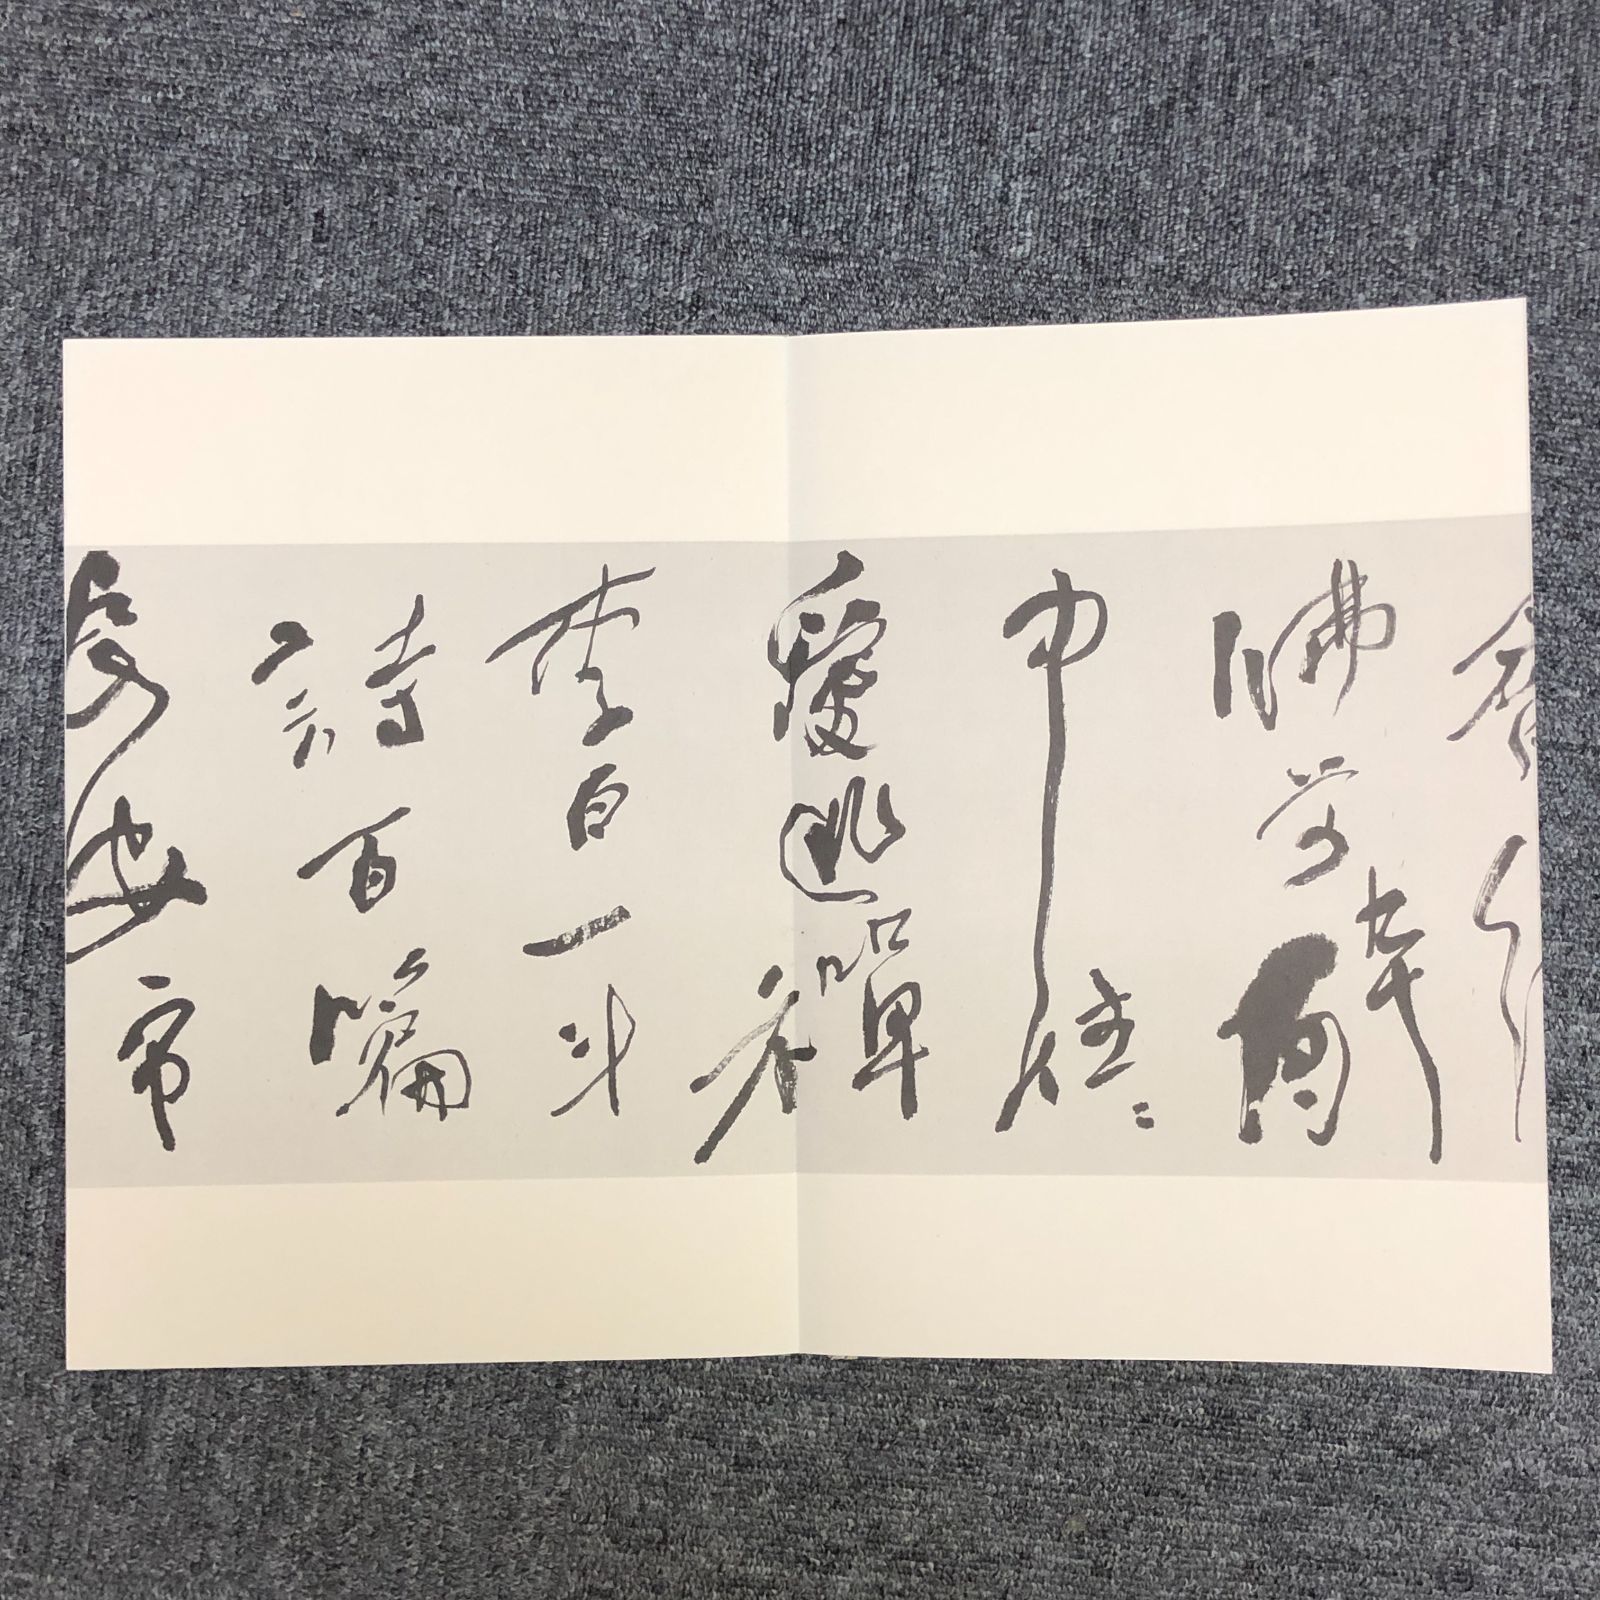 齋繡
佛前醉
中往〻
愛逃禪
李白一斗
詩百篇
長安市